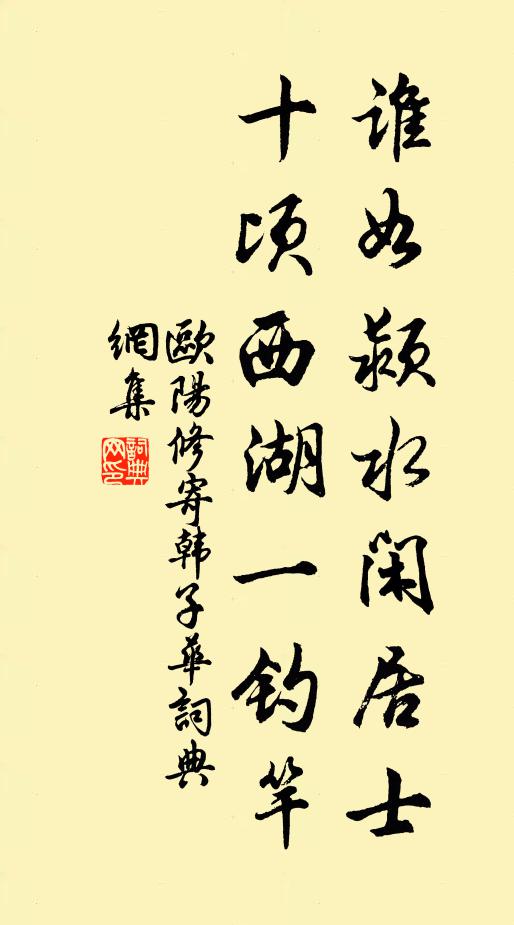 谁如颍水闲居士
十顷西湖一钓竿
歐陽修寄韩子華詞典
網集
詞典
网印